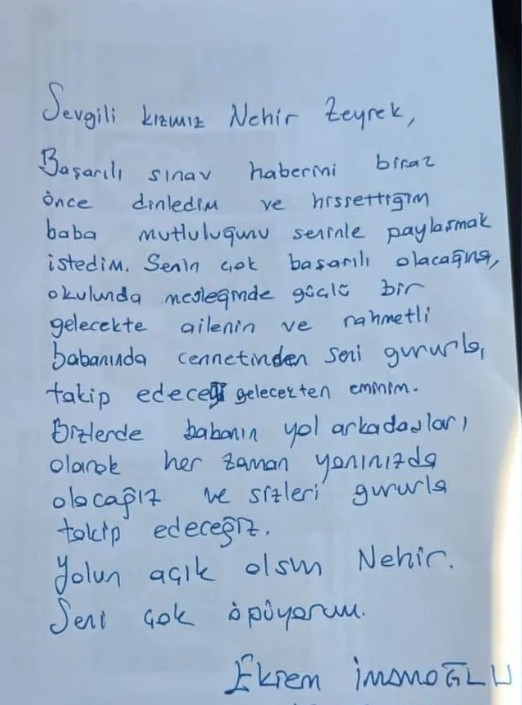 Sevgili kızmız Nehir Zeyrek,
Başarılı sınav haberini biraz
önce dinledim ve hissettiğim
baba mutluluğunu seninle paylaşmak
istedim. Senin çok başarılı olacağına,
okulunda mesleğinde güçlü bir
gelecekte ailenin ve rahmetli
babanında cennetinden seni gururla,
takip edeceği gelecekten eminim.
Bizlerde babanın yol arkadaşları
olarak her zaman yanınızda
olacağız ve sizleri gururla
takip edeceğiz.
Yolun açık olsun Nehir.
Seni çok öpüyorum.
Ekrem İmamoĞLU